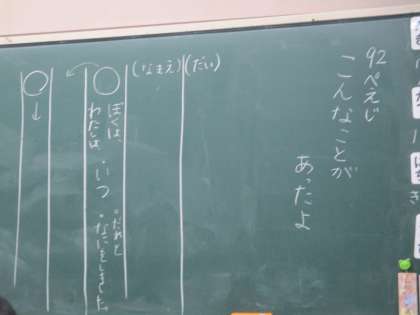 92ぺえじ
こんなことが
あったよ
(だい)
(なまえ)
ぼくは、
わたしは、
・いつ
・だれと
・なにをしました。